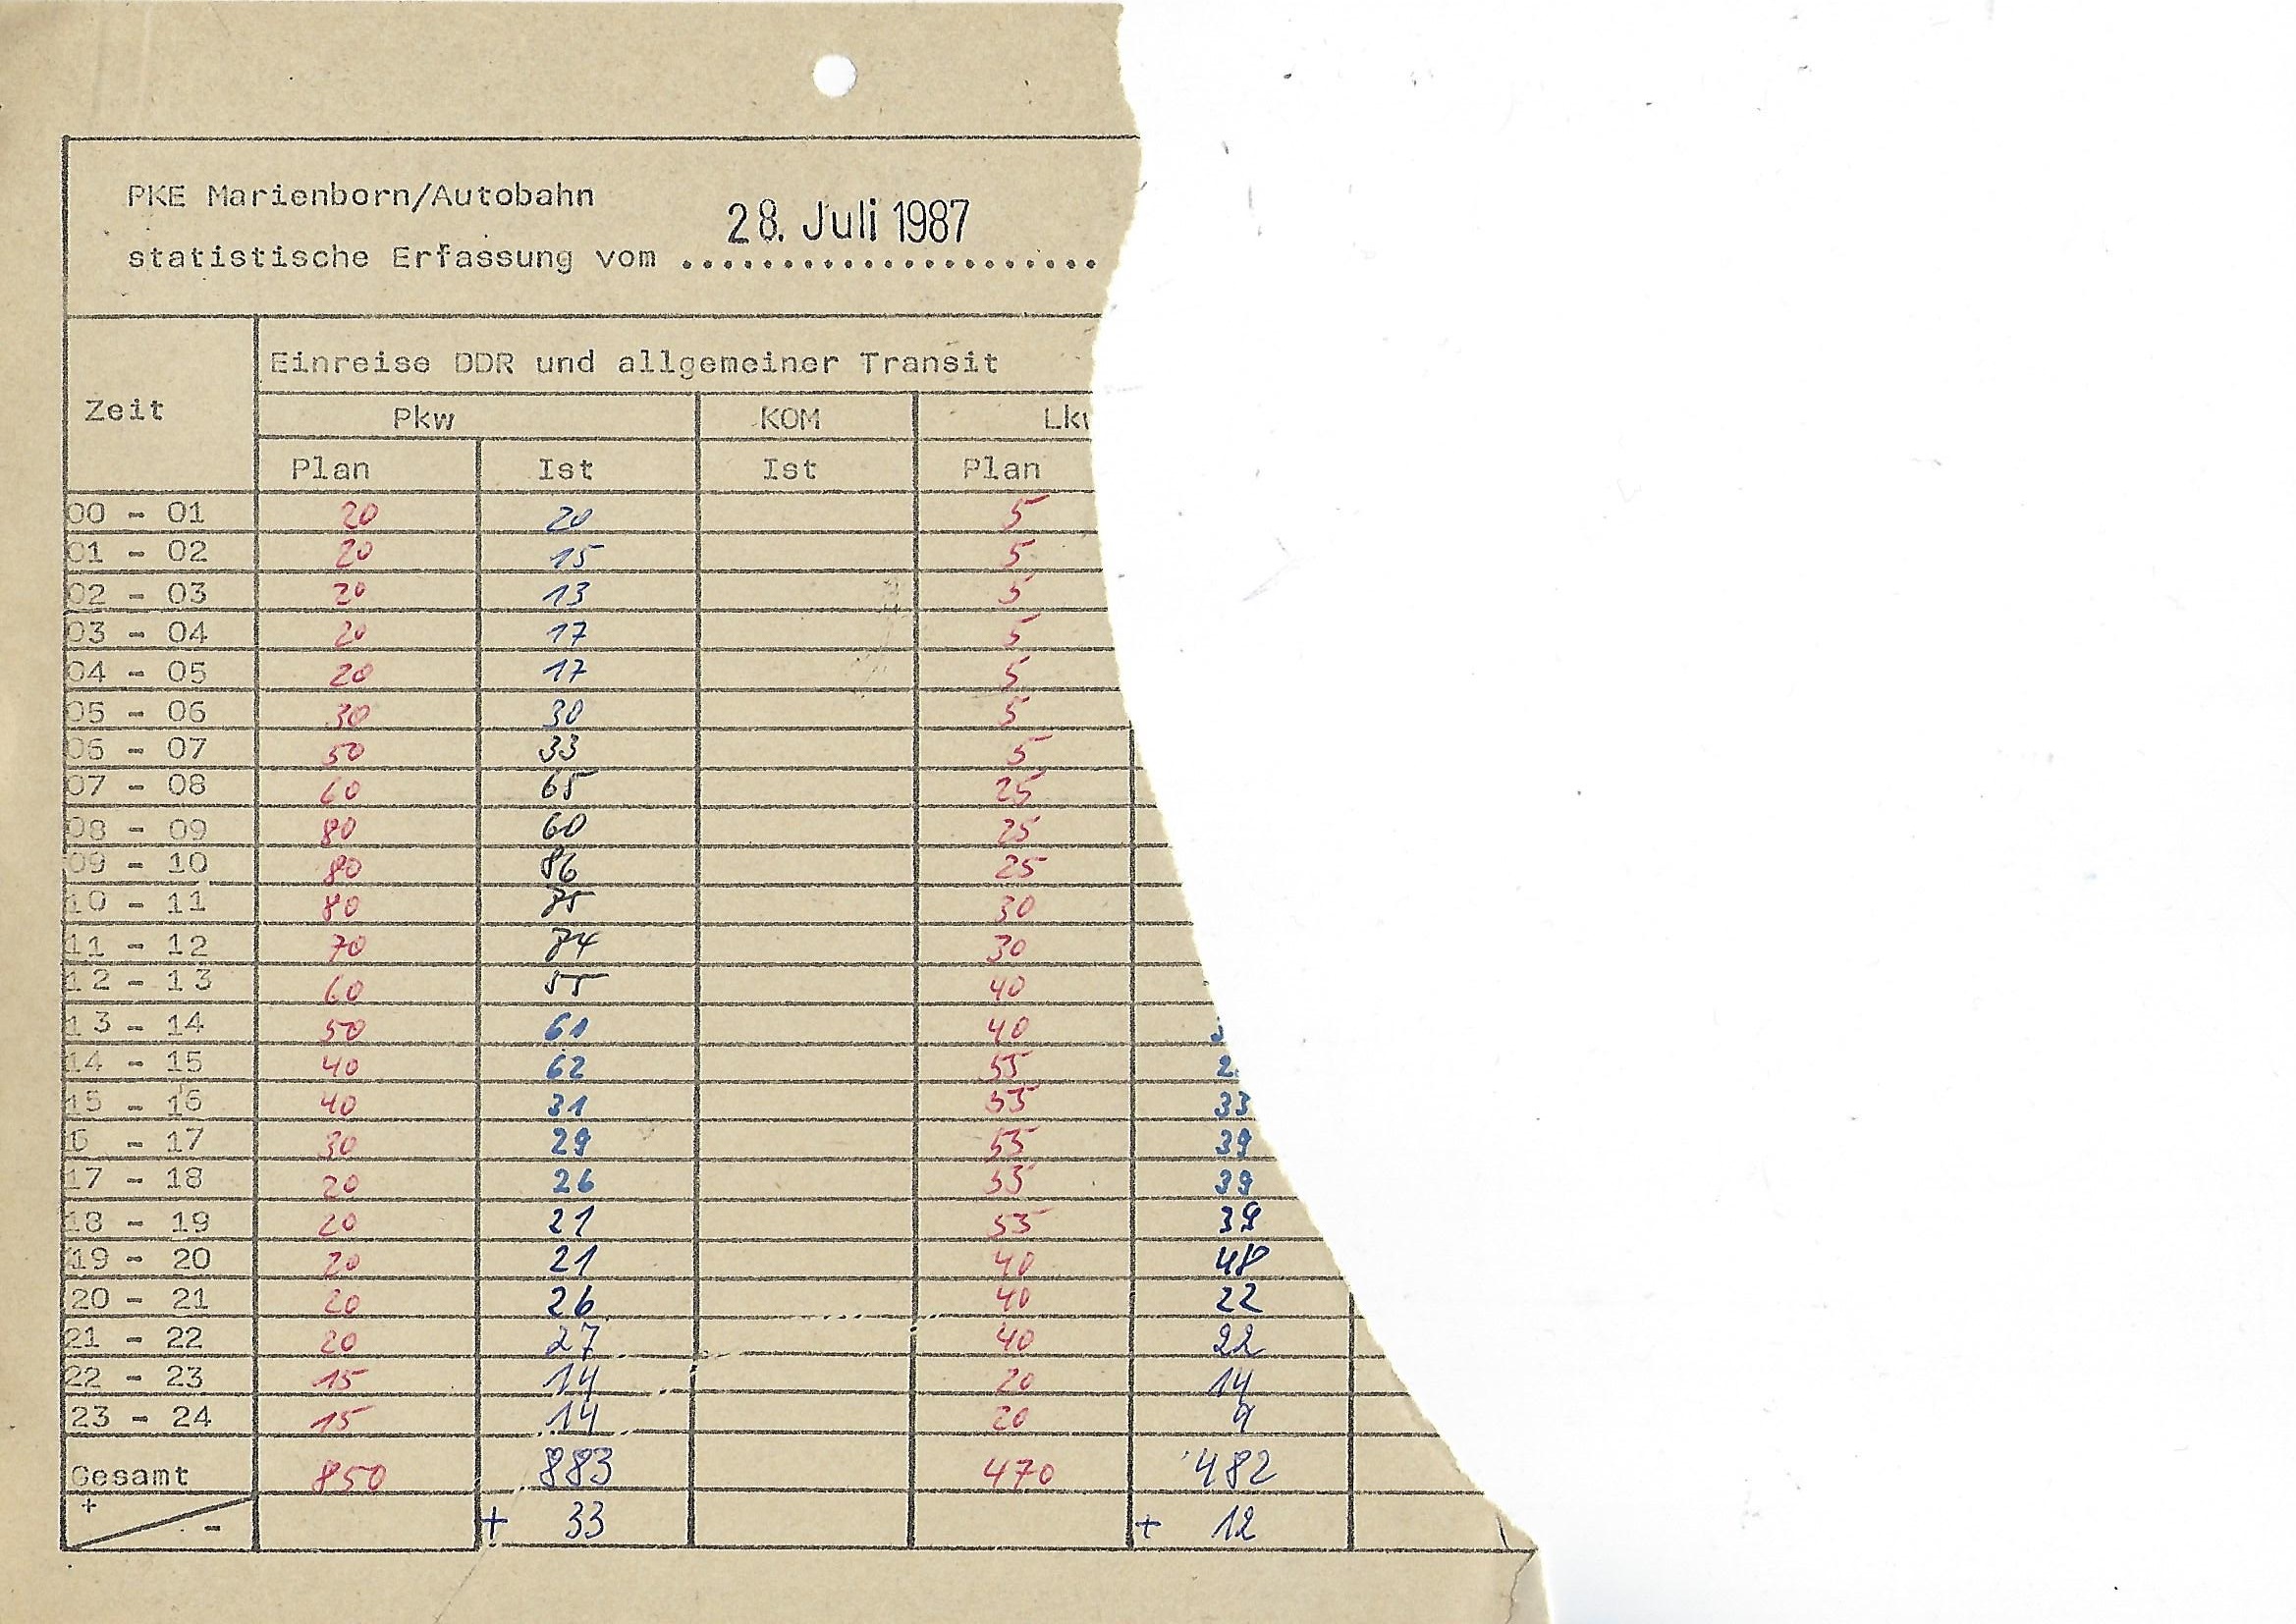 PKE Marienborn/Autobahn
28. Juli 1987
statistische Erfassung vom .....................
Einreise DDR und allgemeiner Transit
Zeit
Pkw KOM Lkw
Plan Ist Ist Plan
00 - 01 20 20 5
01 - 02 20 15 5
02 - 03 20 13 5
03 - 04 20 17 5
04 - 05 20 17 5
05 - 06 30 30 5
06 - 07 50 33 5
07 - 08 60 65 25
08 - 09 80 60 25
09 - 10 80 86 25
10 - 11 80 85 30
11 - 12 70 84 30
12 - 13 60 55 40
13 - 14 50 61 40
14 - 15 40 62 55
15 - 16 40 31 55 33
6 - 17 30 29 55 39
17 - 18 20 26 55 39
18 - 19 20 21 55 39
19 - 20 20 21 40 48
20 - 21 20 26 40 22
21 - 22 20 27 40 22
22 - 23 15 14 20 14
23 - 24 15 14 20 9
Gesamt 850 883 470 482
+ - + 33 + 12